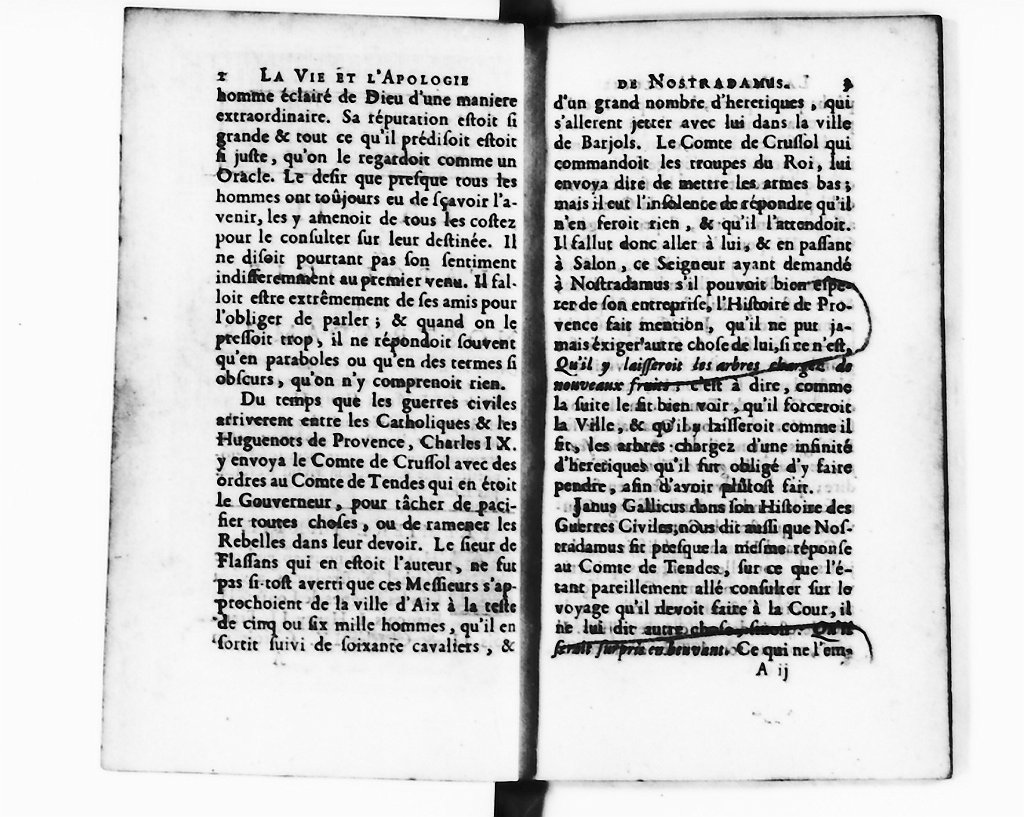 2 LA VIE ET L'APOLOGIE
homme éclairé de Dieu d'une maniere
extraordinaire. Sa réputation eſtoit ſi
grande & tout ce qu'il prédiſoit eſtoit
ſi juſte, qu'on le regardoit comme un
Oracle. Le deſir que preſque tous les
hommes ont toûjours eu de ſçavoir l'a-
venir, les y amenoit de tous les coſtez
pour le conſulter ſur leur deſtinée. Il
ne diſoit pourtant pas ſon ſentiment
indifferemment au premier venu. Il fal-
loit eſtre extrêmement de ſes amis pour
l'obliger de parler ; & quand on le
preſſoit trop, il ne répondoit ſouvent
qu'en paraboles ou qu'en des termes ſi
obſcurs, qu'on n'y comprenoit rien.
Du temps que les guerres civiles
arriverent entre les Catholiques & les
Huguenots de Provence, Charles IX.
y envoya le Comte de Cruſſol avec des
ordres au Comte de Tendes qui en étoit
le Gouverneur, pour tâcher de paci-
fier toutes choſes, ou de ramener les
Rebelles dans leur devoir. Le ſieur de
Flaſſans qui en eſtoit l'auteur, ne fut
pas ſi-toſt averti que ces Meſſieurs s'ap-
prochoient de la ville d'Aix à la teſte
de cinq ou ſix mille hommes, qu'il en
ſortit ſuivi de ſoixante cavaliers, &
DE NOSTRADAMUS. 3
d'un grand nombre d'heretiques, qui
s'allerent jetter avec lui dans la ville
de Barjols. Le Comte de Cruſſol qui
commandoit les troupes du Roi, lui
envoya dire de mettre les armes bas;
mais il eut l'inſolence de répondre qu'il
n'en feroit rien, & qu'il l'attendoit.
Il fallut donc aller à lui, & en paſſant
à Salon, ce Seigneur ayant demandé
à Noſtradamus s'il pouvoit bien eſpe-
rer de ſon entrepriſe, l'Hiſtoire de Pro-
vence fait mention, qu'il ne put ja-
mais éxiger autre choſe de lui, ſi ce n'eſt,
Qu'il y laiſſeroit les arbres chargez de
nouveaux fruits : c'eſt à dire, comme
la ſuite le fit bien voir, qu'il forceroit
la Ville, & qu'il y laiſſeroit comme il
fit, les arbres chargez d'une infinité
d'heretiques qu'il fut obligé d'y faire
pendre, afin d'avoir plûtoſt fait.
Janus Gallicus dans ſon Hiſtoire des
Guerres Civiles, nous dit auſſi que Noſ-
tradamus fit preſque la meſme réponſe
au Comte de Tendes, ſur ce que l'é-
tant pareillement allé conſulter ſur le
voyage qu'il devoit faire à la Cour, il
ne lui dit autre choſe, ſinon : Qu'il
ſeroit ſurpris en beuvant. Ce qui ne l'em-
A ij